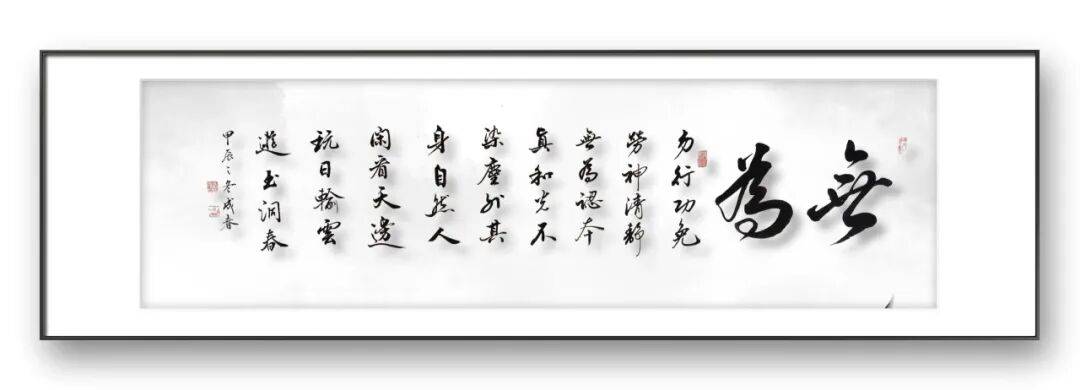 無為
勿行功免
勞神清靜
無為認本
真和光不
染塵外其
身自然人
閑看天邊
玩日輪雲
遊玉洞春
甲辰之冬成春